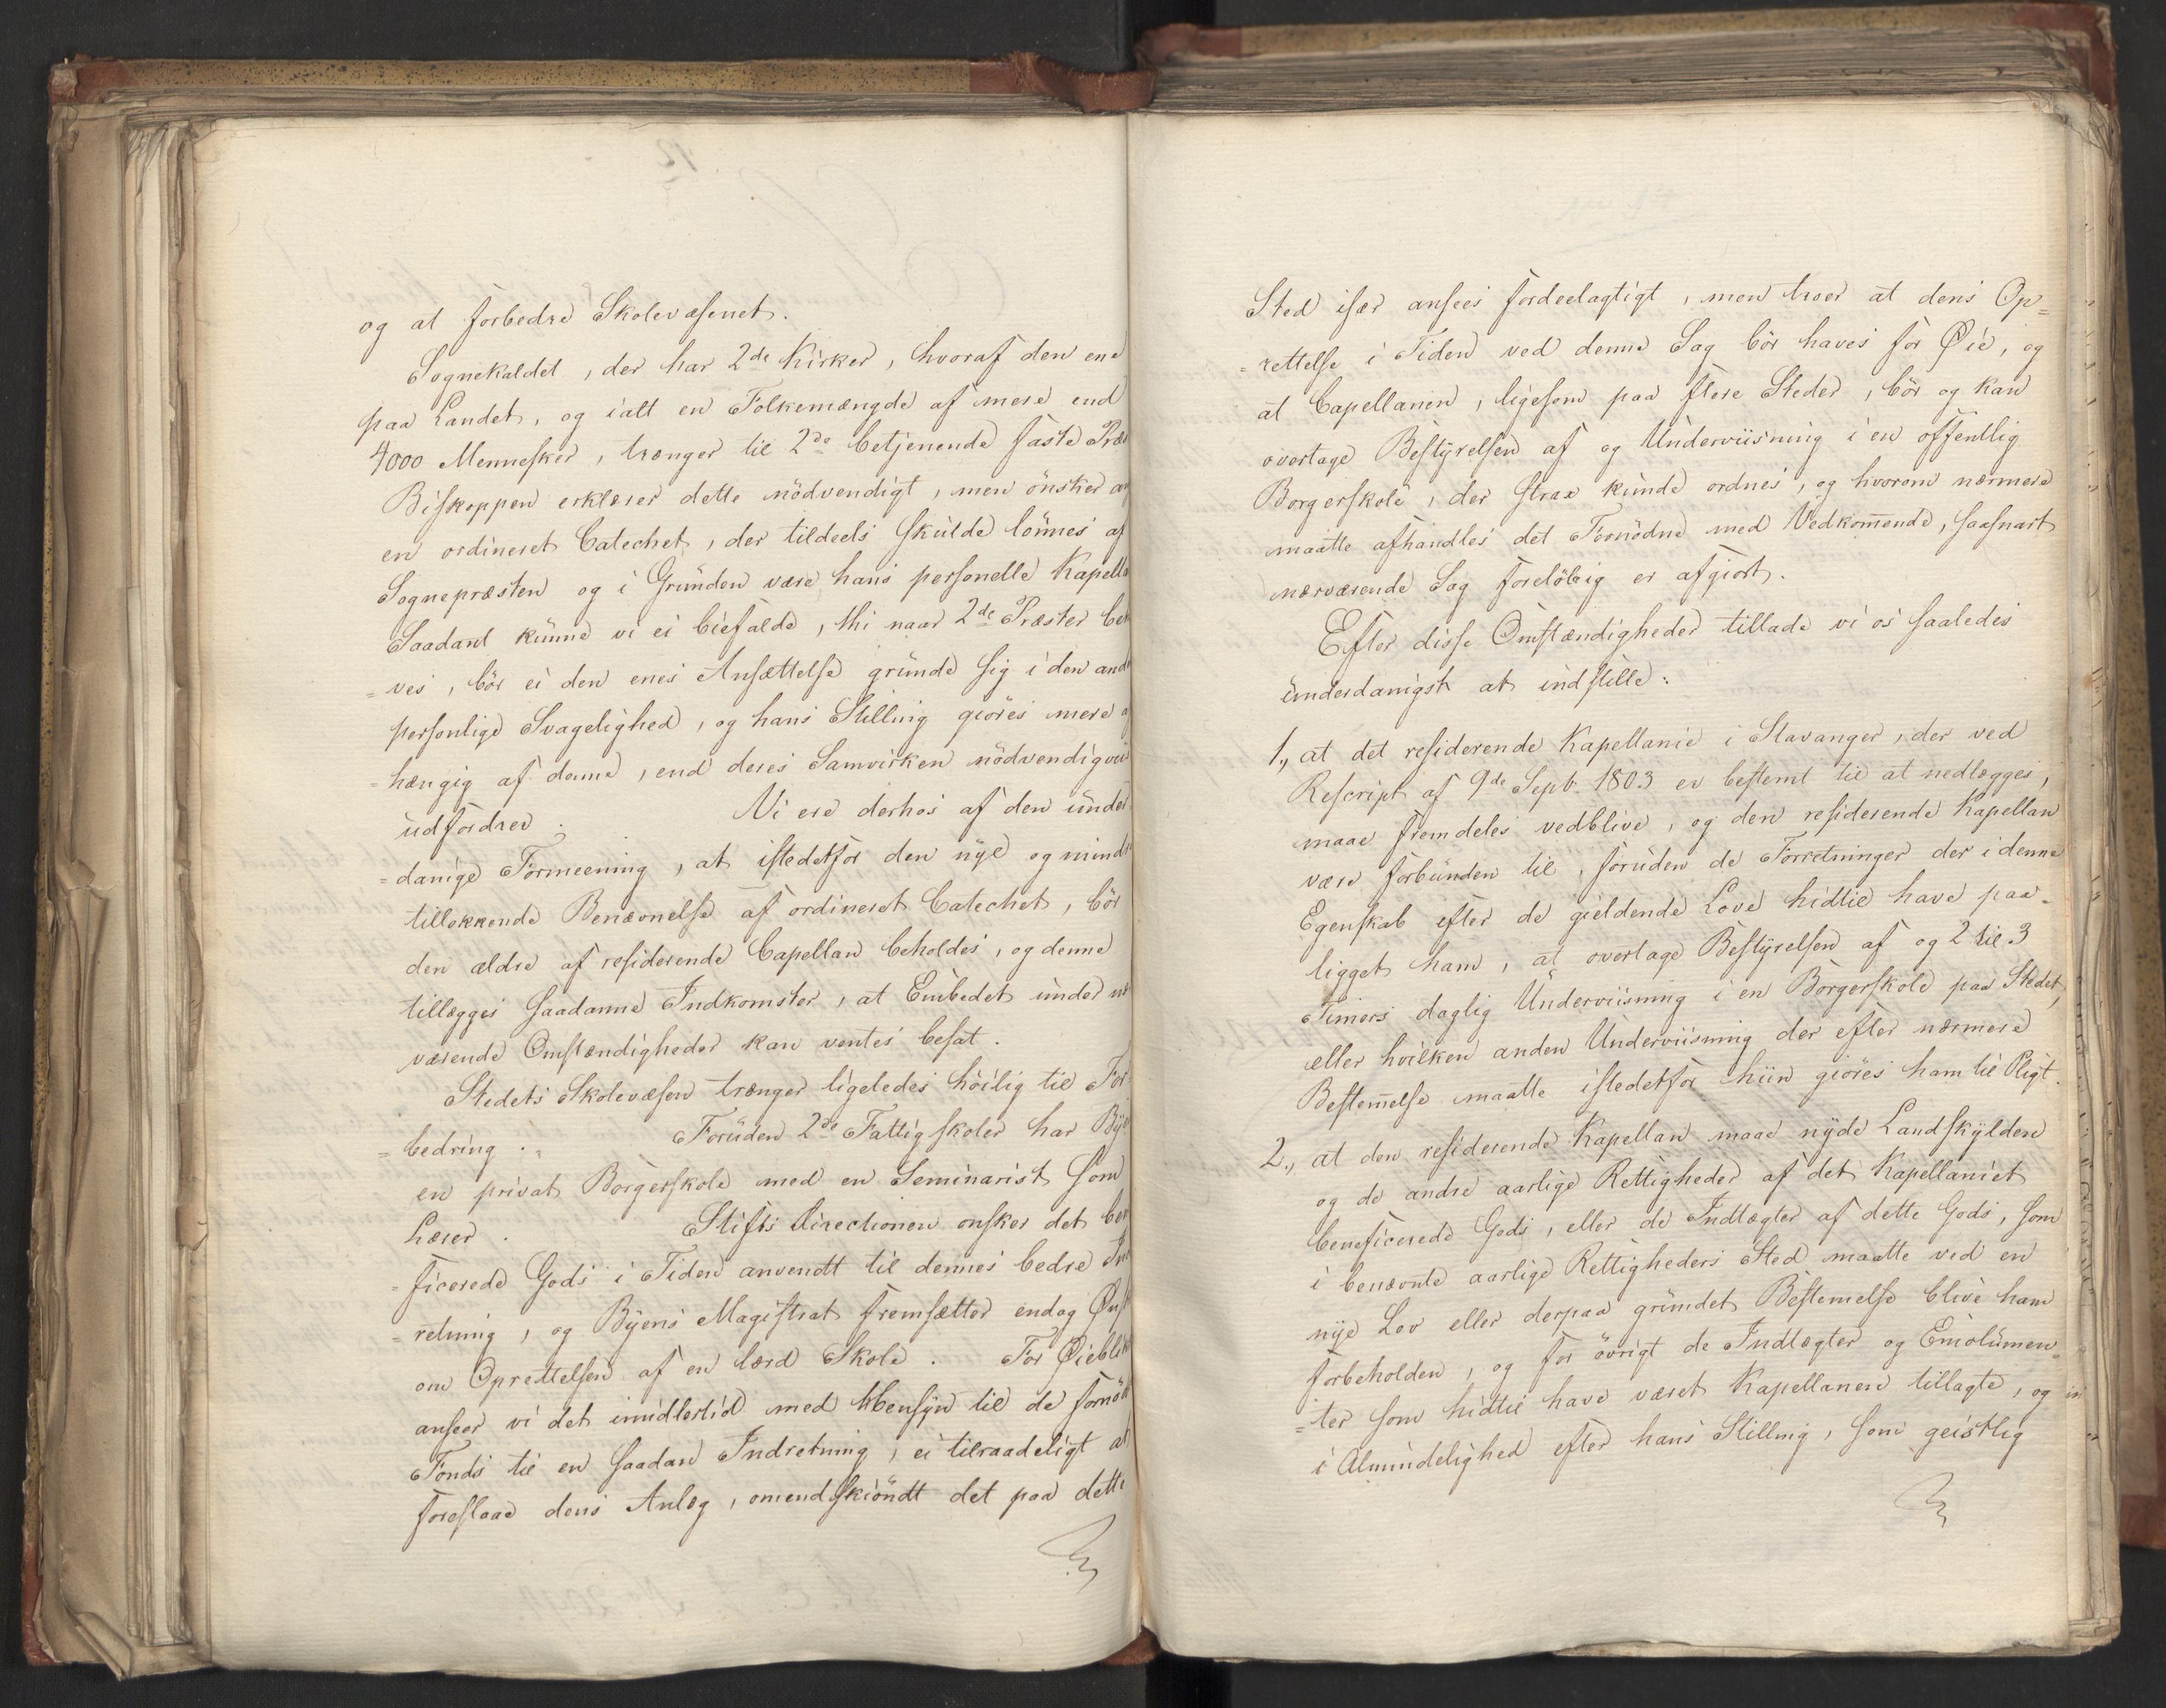 og at forbedre Skolevæsenet.
Sognekaldet, der har 2de Kirker, hvoraf den ene
paa Landet, og ialt en Folkemængde af mere end
4000 Mennesker, trænger til 2de betjenende faste Præ
Biskoppen erklærer dette nödvendigt, men önsker
en ordineret Catechet, der tildeels skulde lönnes af
Sognepræsten og i Grunden være hans personelle Kapell
Saadant kunne vi ei biefalde, thi naar 2de Præster beh
=ves, bör ei den enes Ansættelse grunde sig i den and
personlige Svagelighed, og hans Stilling giöres mere
=hængig af denne, end deres Samvirken nödvendigvii
udfordrer. Vi ere derhos af den under
=danige Formeening, at istedetfor den nye og mind
tillokkende Benævnelse af ordineret Catechet, bör
den ældre af residerende Capellan beholdes, og denne
tillægges saadanne Indkomster, at Embedet under nær
værende Omstændigheder kan ventes besat.
Stedets Skolevæsen trænger ligeledes höilig til For
=bedring. Foruden 2de Fattigskoler har Bye
en privat Borgerskole med en Seminarist som
Lærer. Stifts Directionen onsker det ben
=ficerede Gods i Tiden anvendt til dennes bedre Ind
=retning, og Byens Magistrat fremsætter endog Önsk
om Oprettelsen af en lærd Skole. For Öieblik
anseer vi det imidlertid med Hensyn til de fornöd
Fonds til en saadan Indretning, ei tilraadeligt at
foreslaae dens Anlæg, omendskiöndt det paa dette
Sted især ansees fordeelagtigt, men troer at dens Op=
=rettelse i Tiden ved denne Sag bör haves for Øie, og
at Capellanen, ligesom paa flere Steder, bör og kan
overtage Bestyrelsen af og Underviisning i en offentlig
Borgerskole, der strax kunde ordnes, og hvorom nærmere
maatte afhandles det Fornödne med Vedkommende, saasnart
nærværende Sag forelöbig er afgiort.
Efter disse Omstændigheder tillade vi os saaledes
underdanigst at indstille:
1., at det residerende Kapellanie i Stavanger, der ved
Rescript af 9de Septb. 1803 er bestemt til at nedlægges,
maae fremdeles vedblive, og den residerende Kapellan
være forbunden til, foruden de Forretninger der i denne
Egenskab efter de gieldende Love hidtil have paa=
ligget ham, at overtage Bestyrelsen af og 2 til 3
Timers daglig Underviisning i en Borgerskole paa Stedet,
eller hvilken anden Underviisning der efter nærmere
Bestemmelse maatte istedetfor hiin giöres ham til Pligt.
2., at den residerende Kapellan maae nyde Landskylden
og de andre aarlige Rettigheder af det Kapellaniet
beneficerede Gods, eller de Indtægter af dette Gods, som
i benævnte aarlige Rettigheders Sted maatte ved en
nye Lov eller derpaa grundet Bestemelse blive ham
forbeholden, og for övrigt de Indtægter og Emolumen=
=ter som hidtil have været Kapellanen tillagte, og
i Almindelighed efter hans Stilling, som geistlig